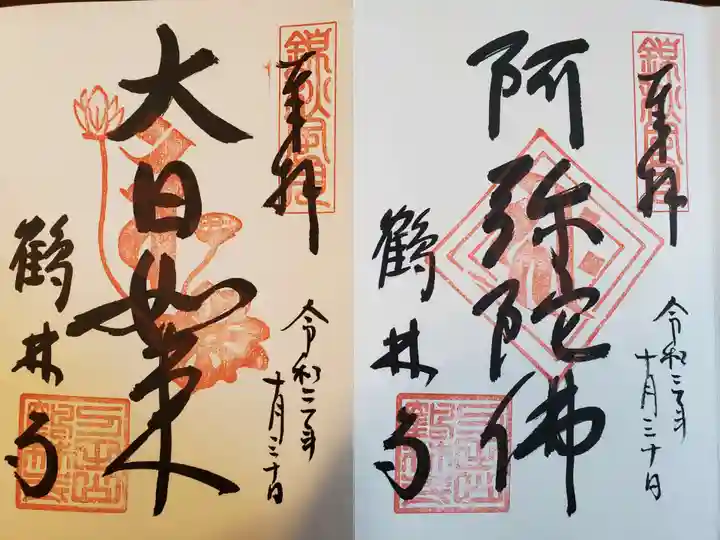 奉拝
大日如来
令和二年
十月三十日
鶴林寺
奉拝
阿弥陀佛
令和二年
十月三十日
鶴林寺